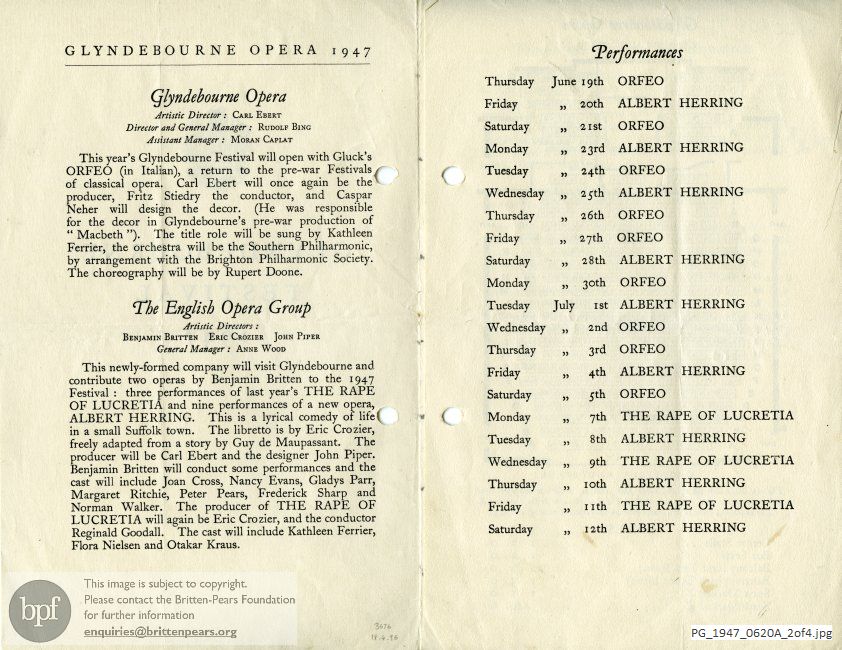 GLYNDEBOURNE OPERA 1947
Glyndebourne Opera
Artistic Director : CARL EBERT
Director and General Manager : RUDOLF BING
Assistant Manager : MORAN CAPLAT
This year's Glyndebourne Festival will open with Gluck's
ORFEO (in Italian), a return to the pre-war Festivals
of classical opera. Carl Ebert will once again be the
producer, Fritz Stiedry the conductor, and Caspar
Neher will design the decor. (He was responsible
for the decor in Glyndebourne's pre-war production of
“ Macbeth ”). The title role will be sung by Kathleen
Ferrier, the orchestra will be the Southern Philharmonic,
by arrangement with the Brighton Philharmonic Society.
The choreography will be by Rupert Doone.
The English Opera Group
Artistic Directors :
BENJAMIN BRITTEN ERIC CROZIER JOHN PIPER
General Manager : ANNE WOOD
This newly-formed company will visit Glyndebourne and
contribute two operas by Benjamin Britten to the 1947
Festival : three performances of last year's THE RAPE
OF LUCRETIA and nine performances of a new opera,
ALBERT HERRING. This is a lyrical comedy of life
in a small Suffolk town. The libretto is by Eric Crozier,
freely adapted from a story by Guy de Maupassant. The
producer will be Carl Ebert and the designer John Piper.
Benjamin Britten will conduct some performances and the
cast will include Joan Cross, Nancy Evans, Gladys Parr,
Margaret Ritchie, Peter Pears, Frederick Sharp and
Norman Walker. The producer of THE RAPE OF
LUCRETIA will again be Eric Crozier, and the conductor
Reginald Goodall. The cast will include Kathleen Ferrier,
Flora Nielsen and Otakar Kraus.
Performances
Thursday June 19th ORFEO
Friday „ 20th ALBERT HERRING
Saturday „ 21st ORFEO
Monday „ 23rd ALBERT HERRING
Tuesday „ 24th ORFEO
Wednesday „ 25th ALBERT HERRING
Thursday „ 26th ORFEO
Friday „ 27th ORFEO
Saturday „ 28th ALBERT HERRING
Monday „ 30th ORFEO
Tuesday July 1st ALBERT HERRING
Wednesday „ 2nd ORFEO
Thursday „ 3rd ORFEO
Friday „ 4th ALBERT HERRING
Saturday „ 5th ORFEO
Monday „ 7th THE RAPE OF LUCRETIA
Tuesday „ 8th ALBERT HERRING
Wednesday „ 9th THE RAPE OF LUCRETIA
Thursday „ 10th ALBERT HERRING
Friday „ 11th THE RAPE OF LUCRETIA
Saturday „ 12th ALBERT HERRING
bpf
This image is subject to copyright.
Please contact the Britten-Pears Foundation
for further information
enquiries@brittenpears.org
PG_1947_0620A_2of4.jpg